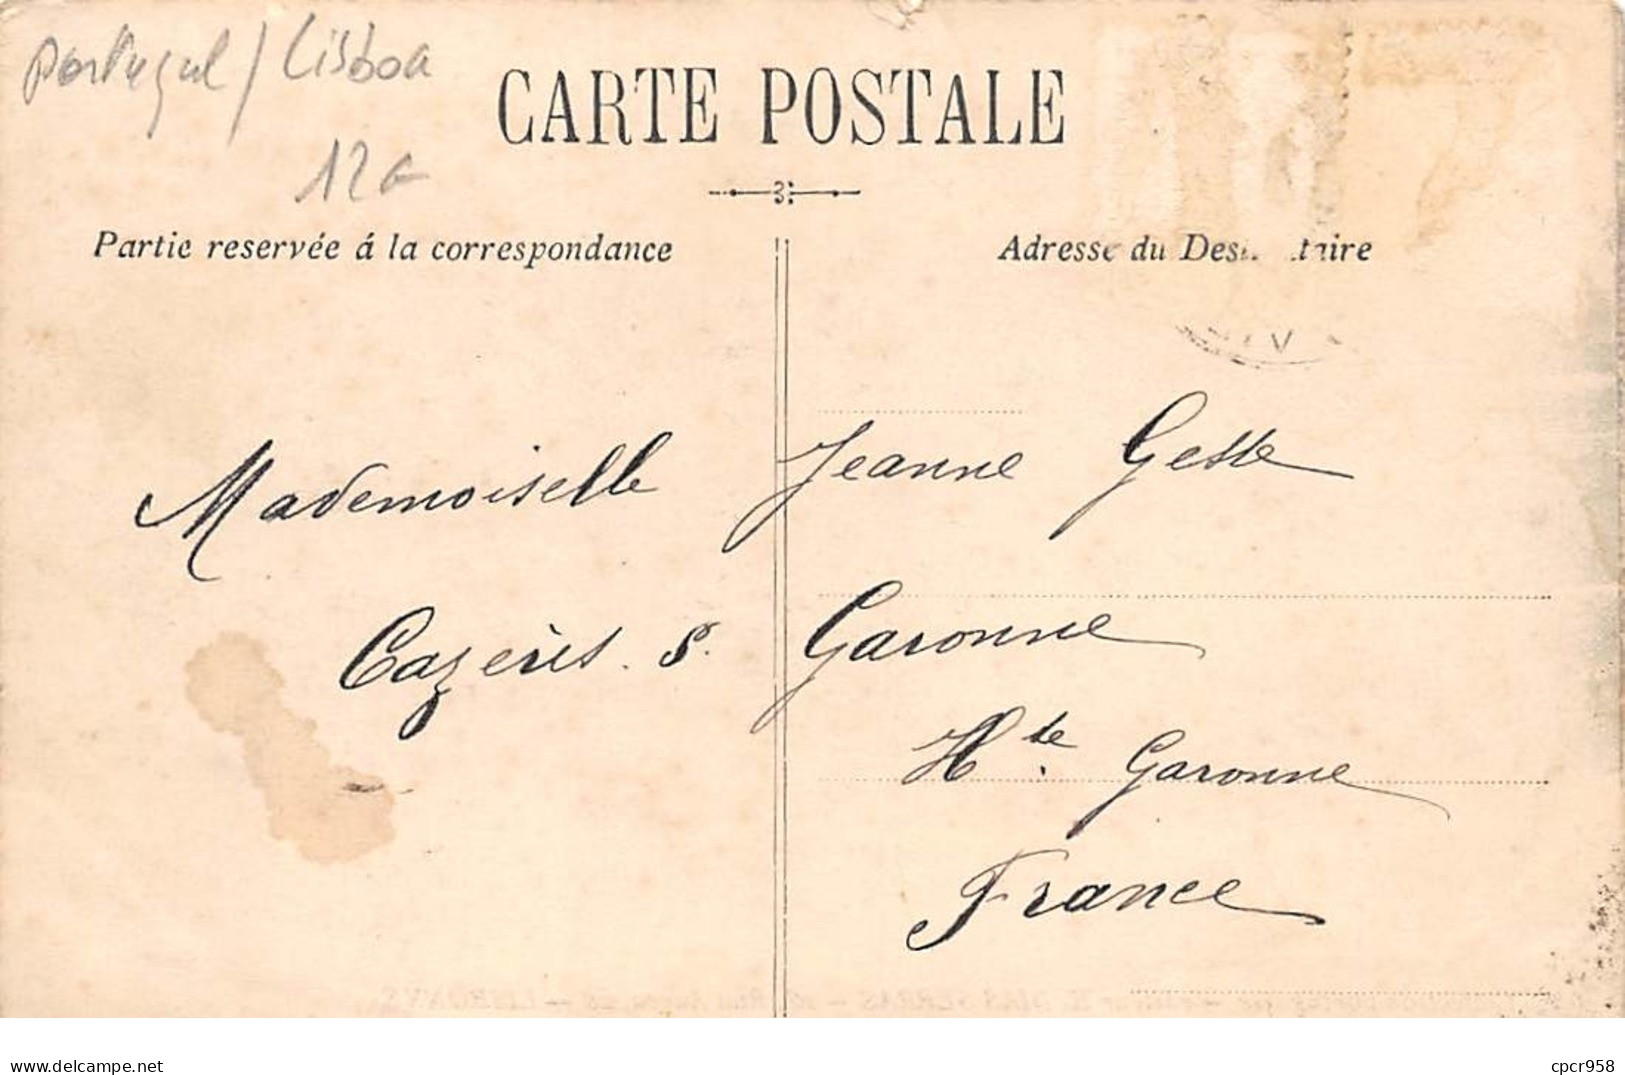 Portugal / Lisboa
12€
CARTE POSTALE
Partie reservée á la correspondance
Adresse du
Mademoiselle Jeanne Gesse
Cazères. S. Garonne
Hte. Garonne
France
www.delcampe.net
cpcr958